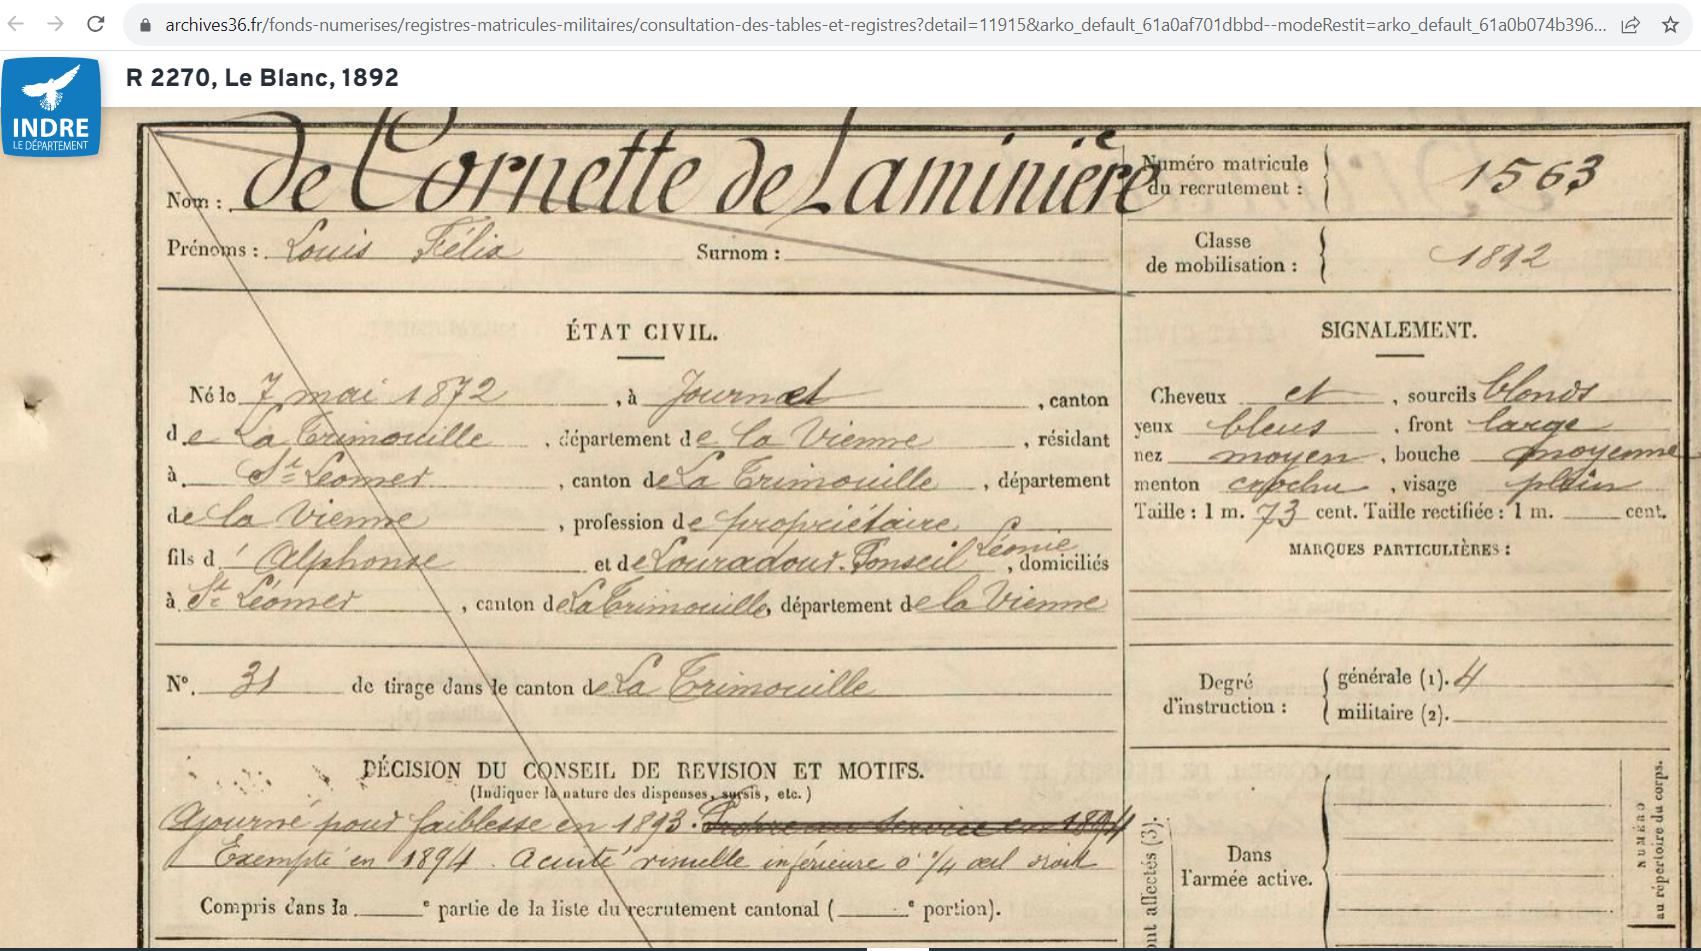 archives36.fr/fonds-numerises/registres-matricules-militaires/consultation-des-tables-et-registres?detail=11915&arko_default_61a0af701dbbd--modeRestit=arko_default_61a0b074b396...
R 2270, Le Blanc, 1892
INDRE
LE DÉPARTEMENT
Nom : de Cornette de Laminière
Numéro matricule du recrutement : 1563
Prénoms : Louis Félix Surnom :
Classe de mobilisation : 1892
ÉTAT CIVIL.
Né le 7 mai 1872, à Journet, canton
de La Trimouille, département de la Vienne, résidant
à St Léomer, canton de La Trimouille, département
de la Vienne, profession de propriétaire
fils d' Alphonse et de Louradour-Ponseil Léonie, domiciliés
à St Léomer, canton de La Trimouille, département de la Vienne
N°. 31 de tirage dans le canton de La Trimouille
DÉCISION DU CONSEIL DE REVISION ET MOTIFS.
(Indiquer la nature des dispenses, sursis, etc.)
Ajourné pour faiblesse en 1893. en 1894
Exempté en 1894. Acuité visuelle inférieure à 1/4 œil droit
Compris dans la e partie de la liste du recrutement cantonal ( e portion).
SIGNALEMENT.
Cheveux et, sourcils blonds
yeux bleus, front large
nez moyen, bouche moyenne
menton crochu, visage plein
Taille : 1 m. 73 cent. Taille rectifiée : 1 m. cent.
MARQUES PARTICULIÈRES :
Degré d'instruction :
générale (1). 4
militaire (2).
ont affectés (3).
Dans
l'armée active.
NUMÉRO
au répertoire du corps.